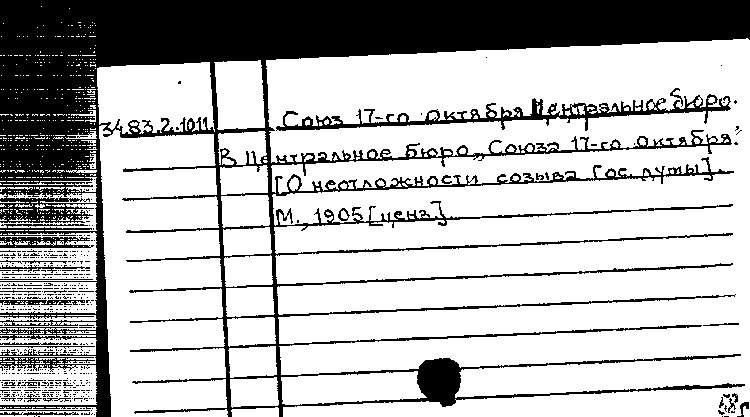 34.83.2.1011. Союз 17-го Октября Центральное бюро.
В Центральное бюро „Союза 17-го Октября".
[О неотложности созыва Гос. думы].
М., 1905 [ценз.]